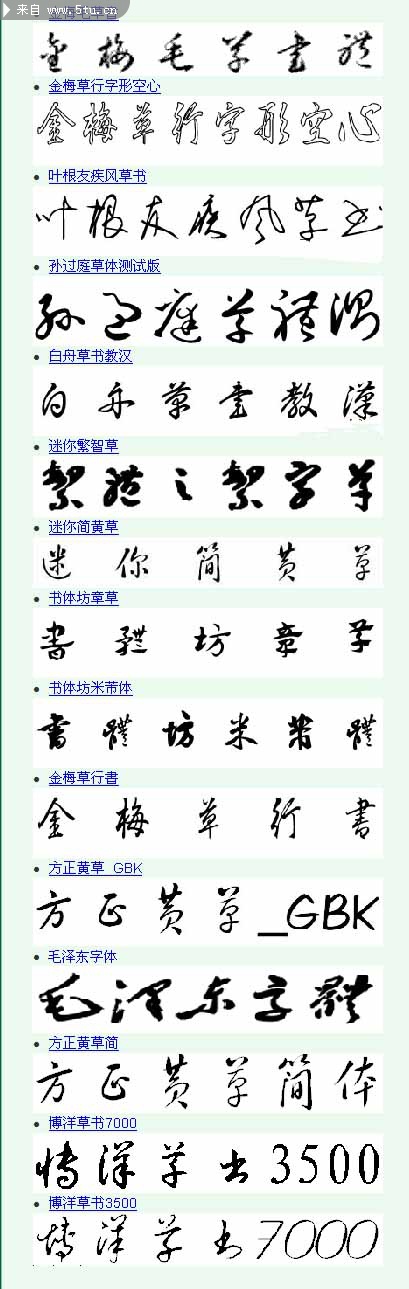 来自 www.5tu.cn
金梅毛草書
金梅毛草書體
金梅草行字形空心
金梅草行字形空心
叶根友疾风草书
叶根友疾风草书
孙过庭草体测试版
孙过庭草體测
白舟草书教汉
白舟草書教漢
迷你繁智草
繁體之繁字草
迷你简黄草
迷你简黄草
书体坊章草
書體坊章草
书体坊米芾体
書體坊米芾體
金梅草行書
金梅草行書
方正黄草_GBK
方正黄草_GBK
毛泽东字体
毛泽东字體
方正黄草简
方正黄草简体
博洋草书7000
博洋草书3500
博洋草书3500
博洋草书7000